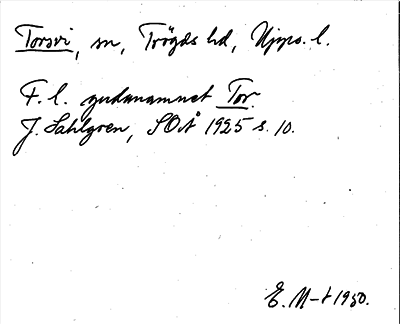 Torsvi, sn, Trögds hd, Upps. l.
F. l. gudanamnet Tor.
J. Sahlgren, SOÅ 1925 s. 10.
E. M-t 1950.